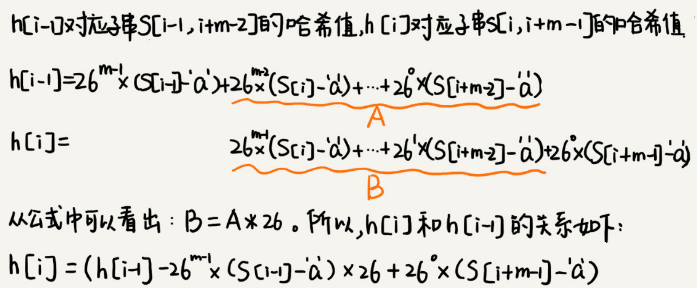 h[i-1]对应子串S[i-1,i+m-2]的哈希值,h[i]对应子串S[i,i+m-1]的哈希值
h[i-1]=26^{m-1}×(S[i-1]-'a')+26^{m-2}×(S[i]-'a')+⋯+26^0×(S[i+m-2]-'a')
A
h[i]= 26^{m-1}×(S[i]-'a')+⋯+26^1×(S[i+m-2]-'a')+26^0×(S[i+m-1]-'a')
B
从公式中可以看出:B=A*26。所以,h[i]和h[i-1]的关系如下:
h[i]=(h[i-1]-26^{m-1}×(S[i-1]-'a')×26+26^0×(S[i+m-1]-'a')